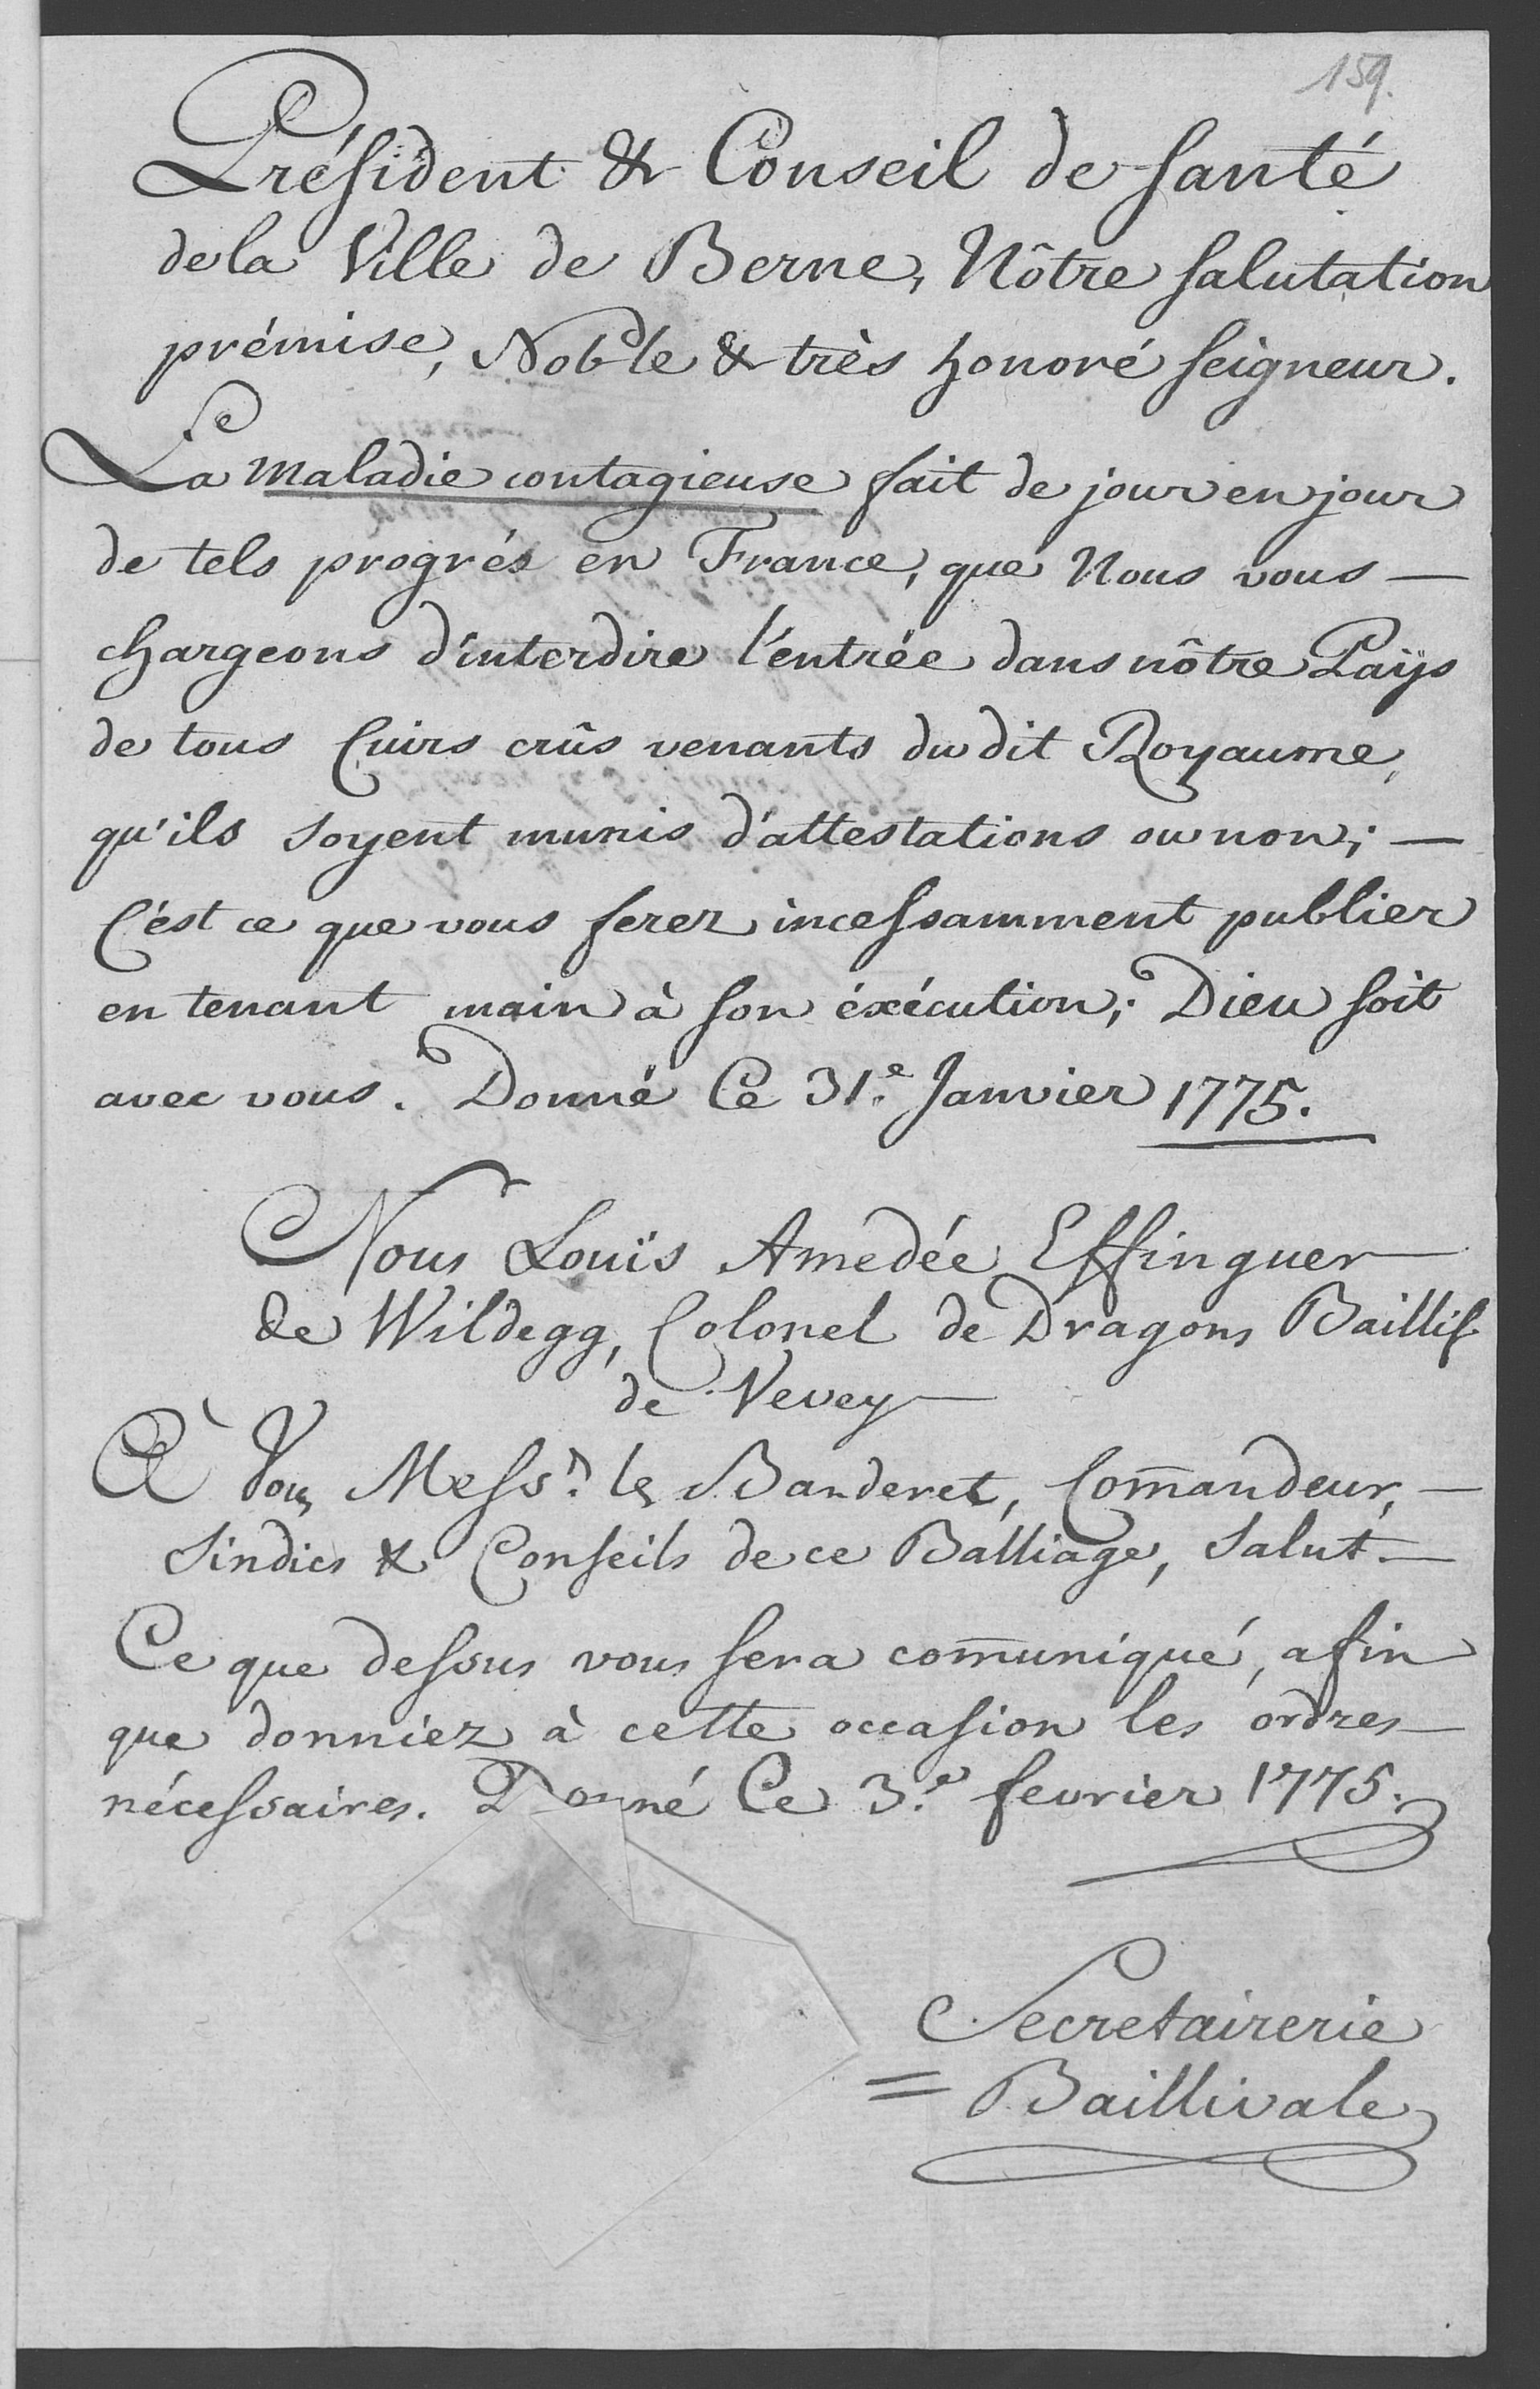 159.
Président & Conseil de santé
de la Ville de Berne, Nôtre salutation
prémise, Noble & très honoré seigneur.
La maladie contagieuse fait de jour en jour
de tels progrés en France, que Nous vous —
chargeons d'interdire l'entrée dans nôtre Païs
de tous Cuirs crûs venants du dit Royaume,
qu'ils soyent munis d'attestations ou non; —
C'est ce que vous ferez incessamment publier
en tenant main à son éxécution; Dieu soit
avec vous. Donné Ce 31.e Janvier 1775.
Nous Louïs Amedée Effinguer
de Wildegg, Colonel de Dragons Baillif
de Vevey —
A Vous Mess.rs les Banderet, Com̄andeur, —
Sindics & Conseils de ce Balliage, Salut. —
Ce que dessus vous sera com̄uniqué, afin
que donniez à cette occasion les ordres —
nécessaires. Donné Ce 3.e fevrier 1775.
Secretairerie
= Baillivale